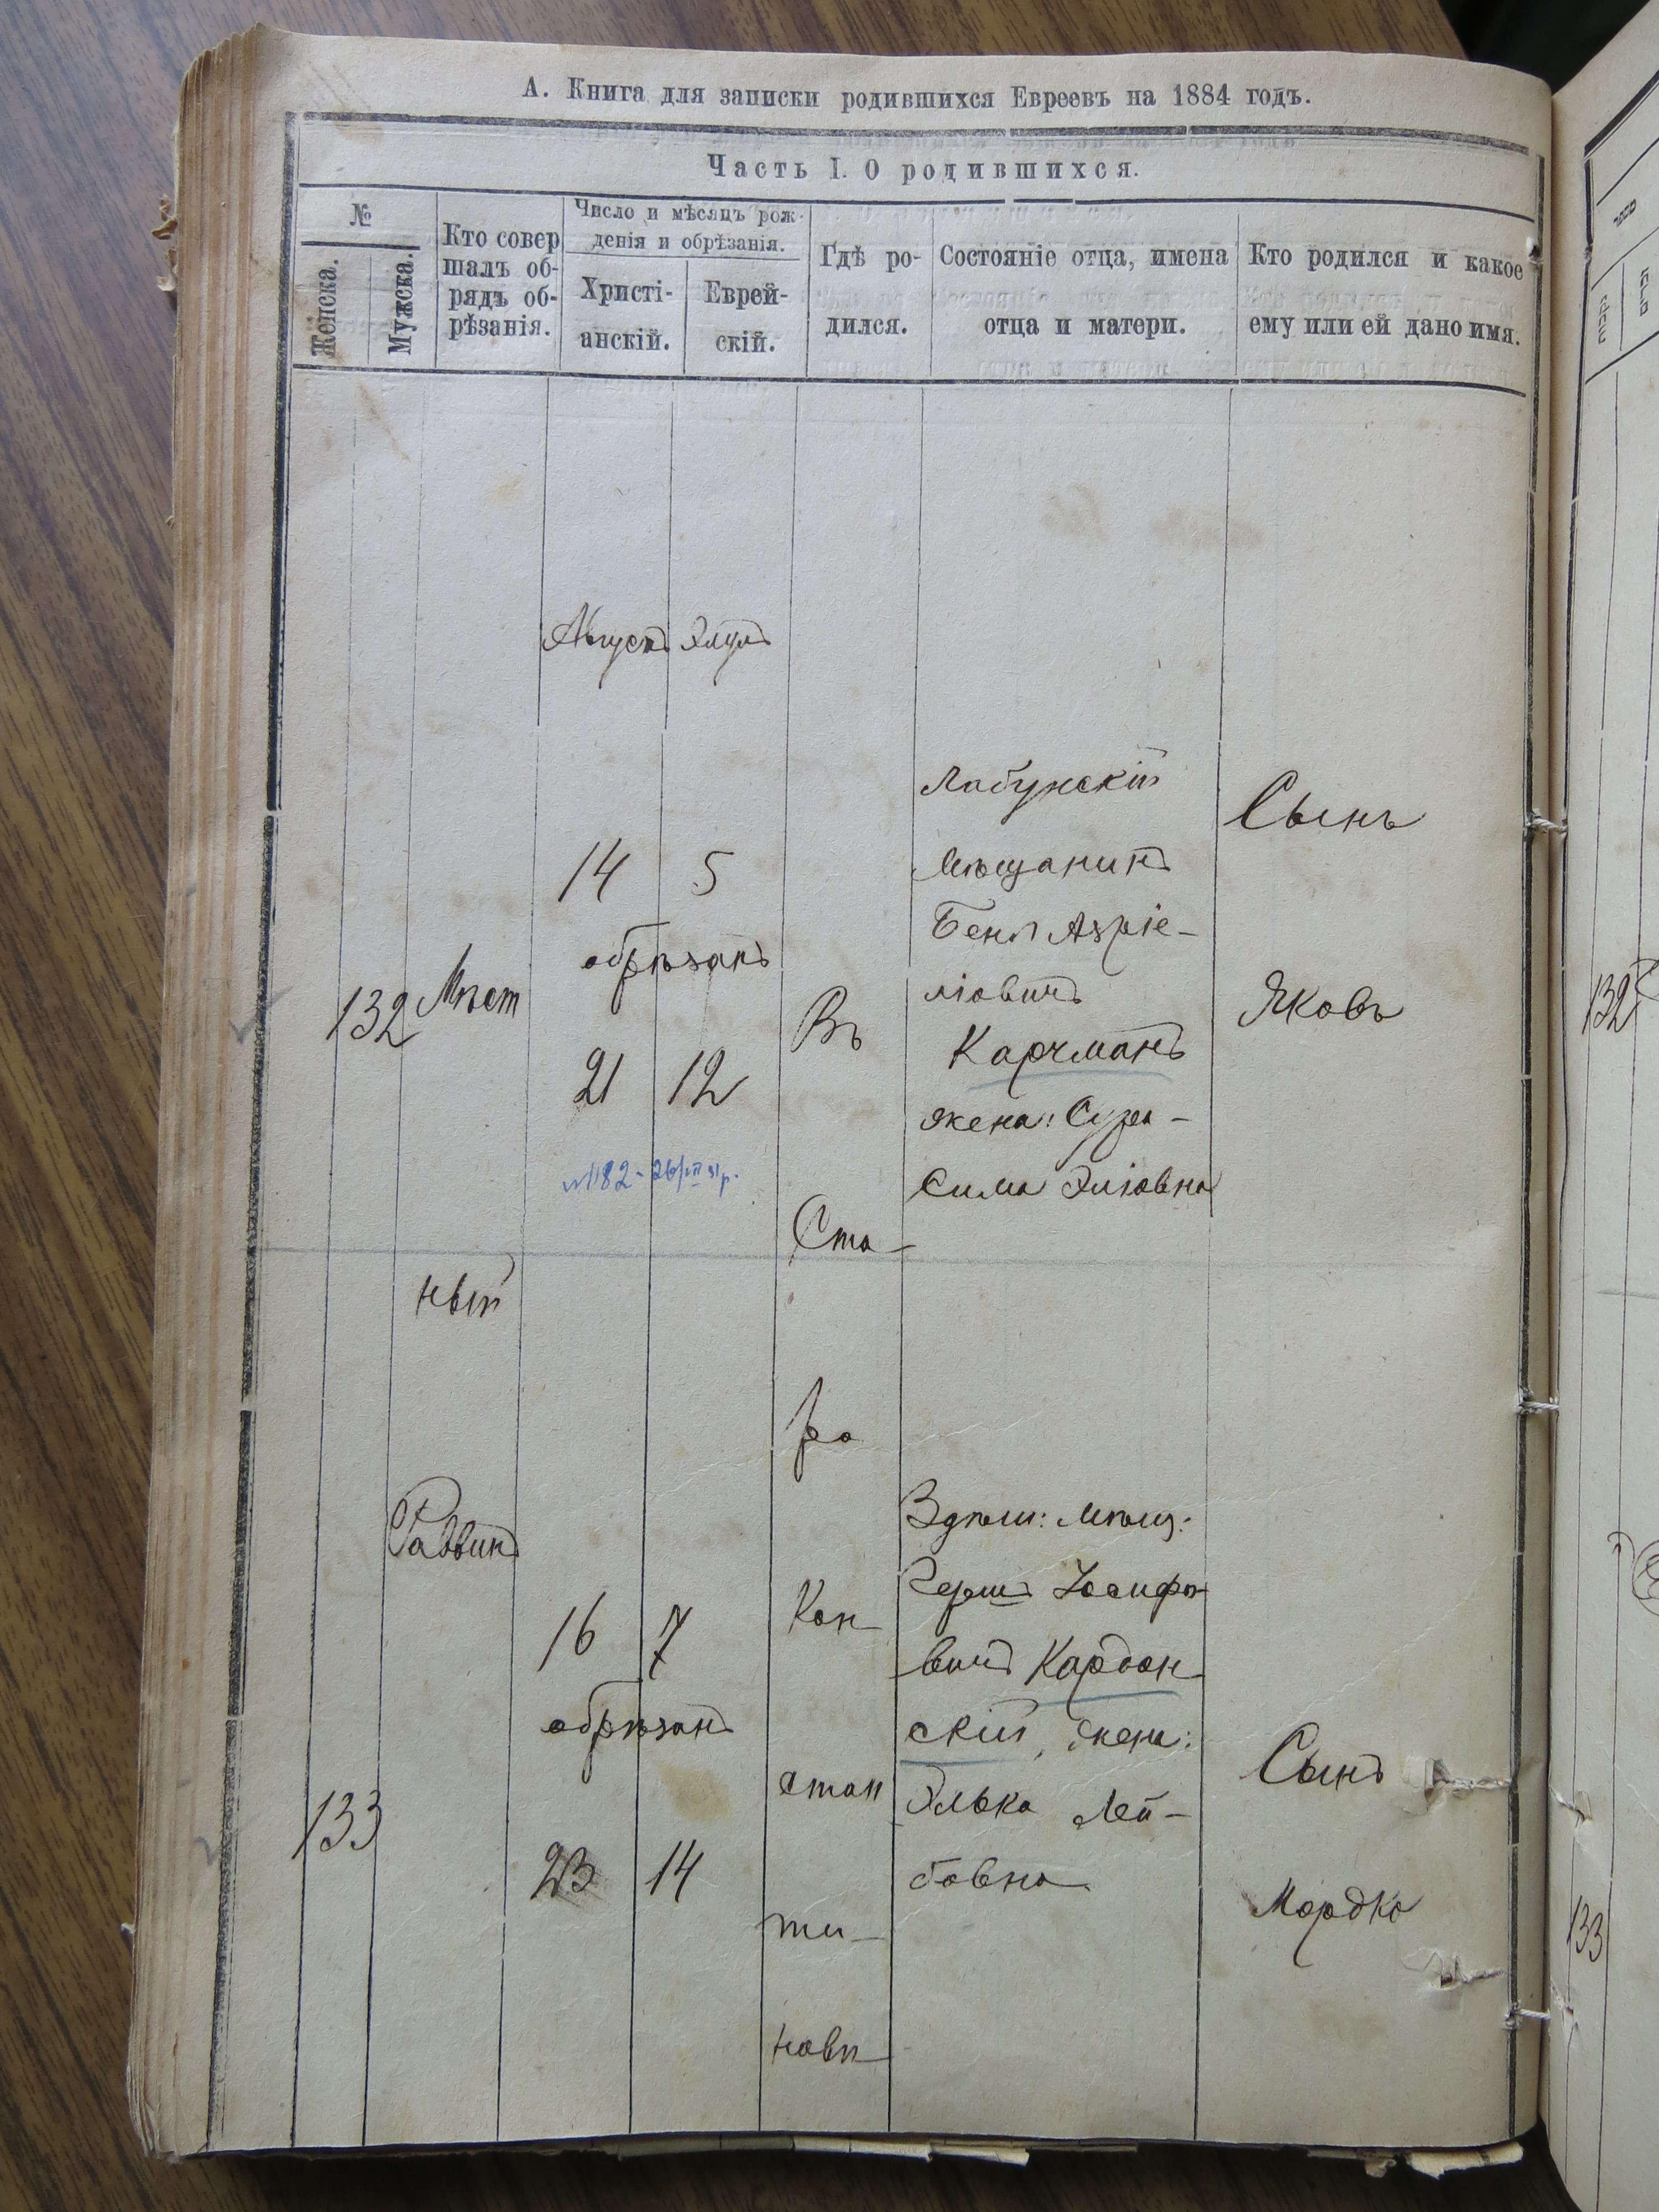 А. Книга для записки родившихся Евреевъ на 1884 годъ.
Часть I. О родившихся.
№
Женска.
Мужска.
Кто совер
шалъ об-
рядъ об-
рѣзанія.
Число и мѣсяцъ рож-
денія и обрѣзанія.
Христі-
анскій.
Еврей-
скій.
Гдѣ ро-
дился.
Состояніе отца, имена
отца и матери.
Кто родился и какое
ему или ей дано имя.
Августъ Элулъ
132
Мѣст
ный
Раввинъ
14 5
обрѣзанъ
21 12
Въ
Ста-
ро
Кон-
стан
ти-
новѣ
Лабунскій
Мѣщанинъ
Бенъ Азріе-
ліовичъ
Карчманъ
жена: Сура-
Сима Эліовна
Сынъ
Яковъ
133
16 7
обрѣзанъ
23 14
Здѣш: мѣщ:
Гершъ Іосифо-
вичъ Кардон-
скій, жена:
Элька Лей-
бовна
Сынъ
Мордко
132
133